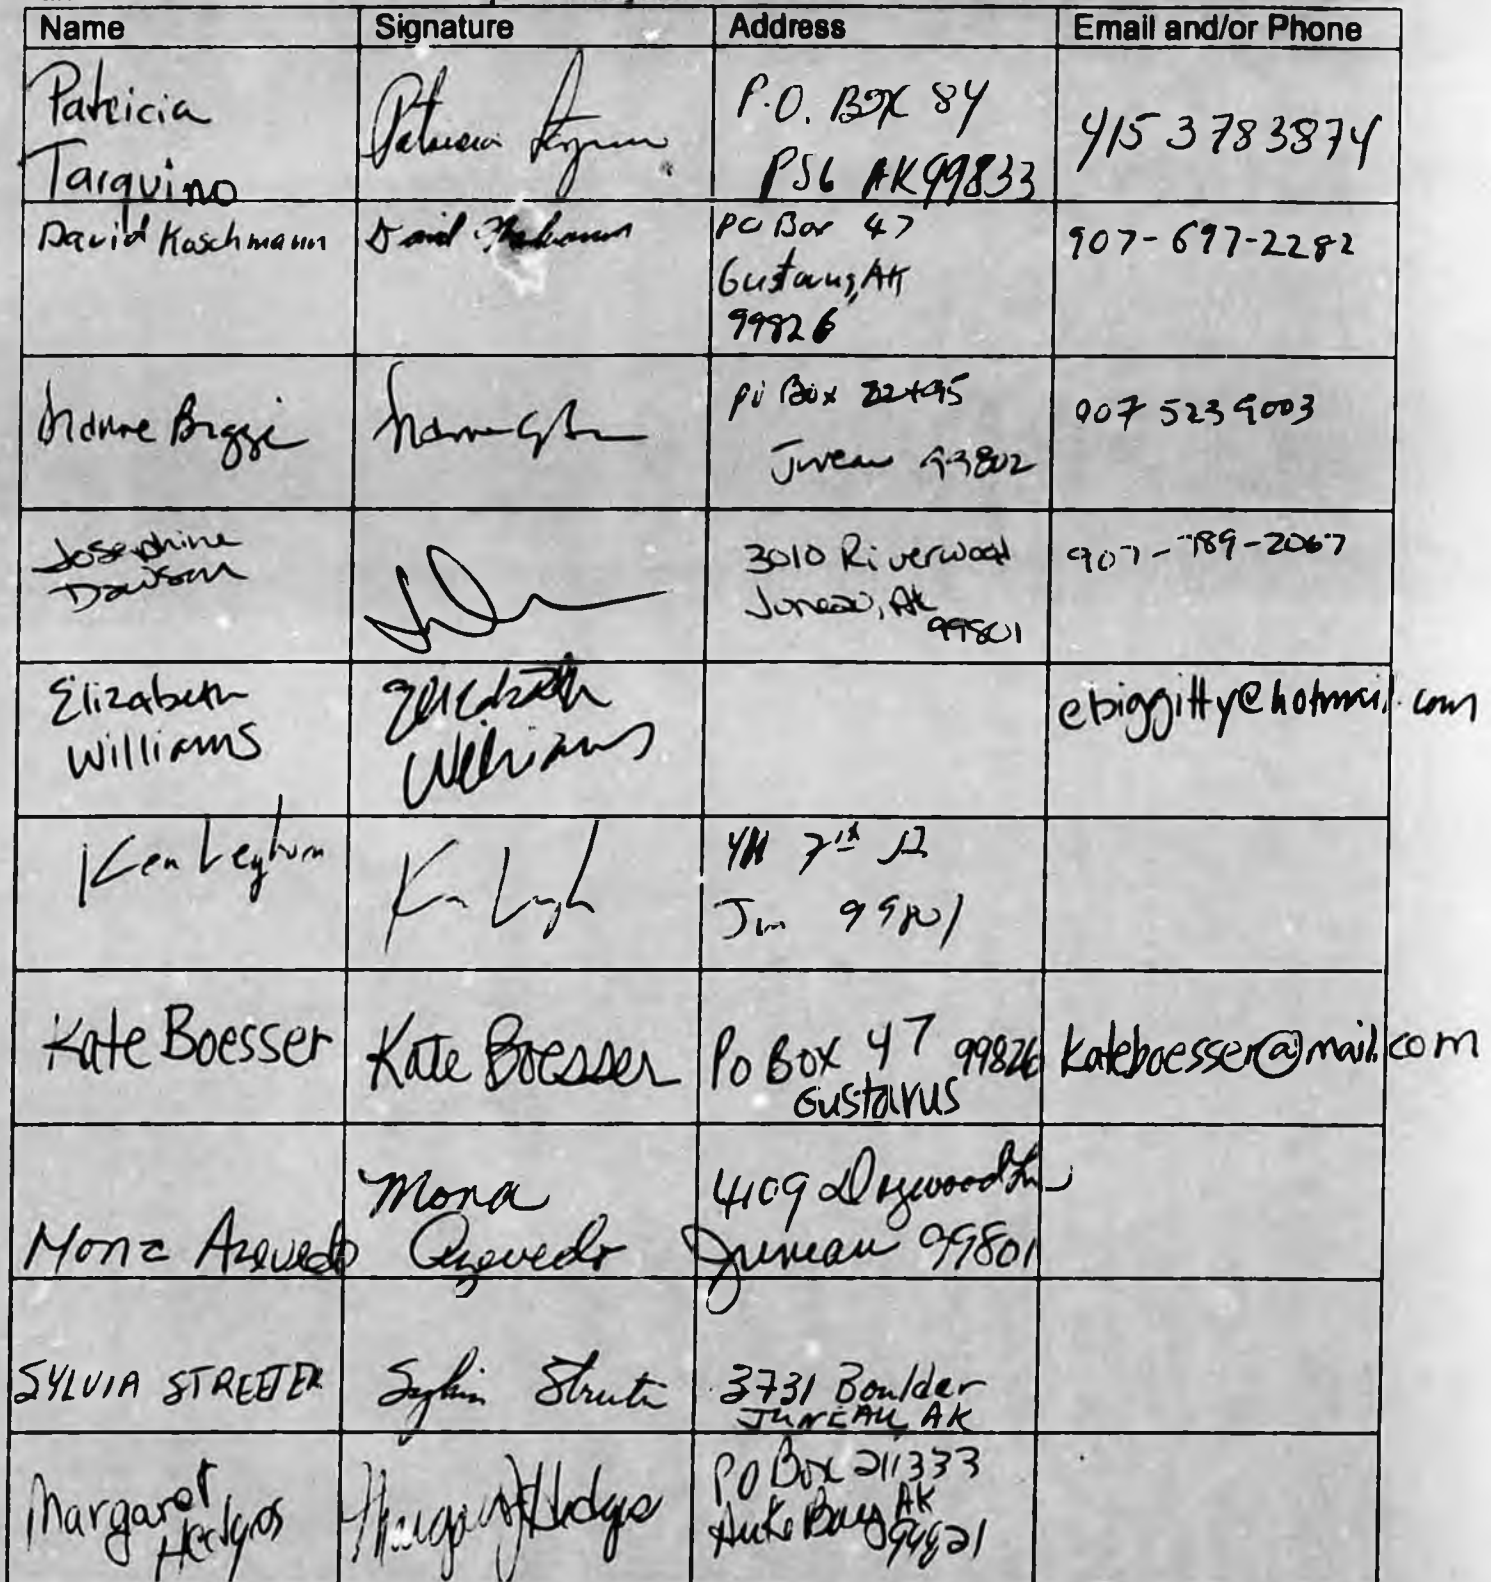 Name Signature Address Email and/or Phone
Patricia
Tarquino
Patricia
P.O. BOX 84
PSG AK 99833
415 3783874
David Kaschmann
David
PO Box 47
Gustavus, AK
99826
907-697-2282
Biggs
PO Box
Juneau 99802
907 523 9003
Josephine
Dawson
3010 Riverwood
Juneau, AK
99801
907-789-2067
Elizabeth
Williams
Elizabeth
Williams
ebiggitty@hotmail.com
Ken Leghorn
Ken
7th St
Jun 99801
Kate Boesser
Kate Boesser
PO BOX 47 99826
Gustavus
kateboesser@mail.com
Mona Azevedo
Mona
Azevedo
4109 Dogwood Ln
Juneau 99801
SYLVIA STREETER
Sylvia Streeter
3731 Boulder
JUNEAU, AK
Margaret
Hedges
Margaret Hedges
PO Box 211333
Auke Bay AK
99821